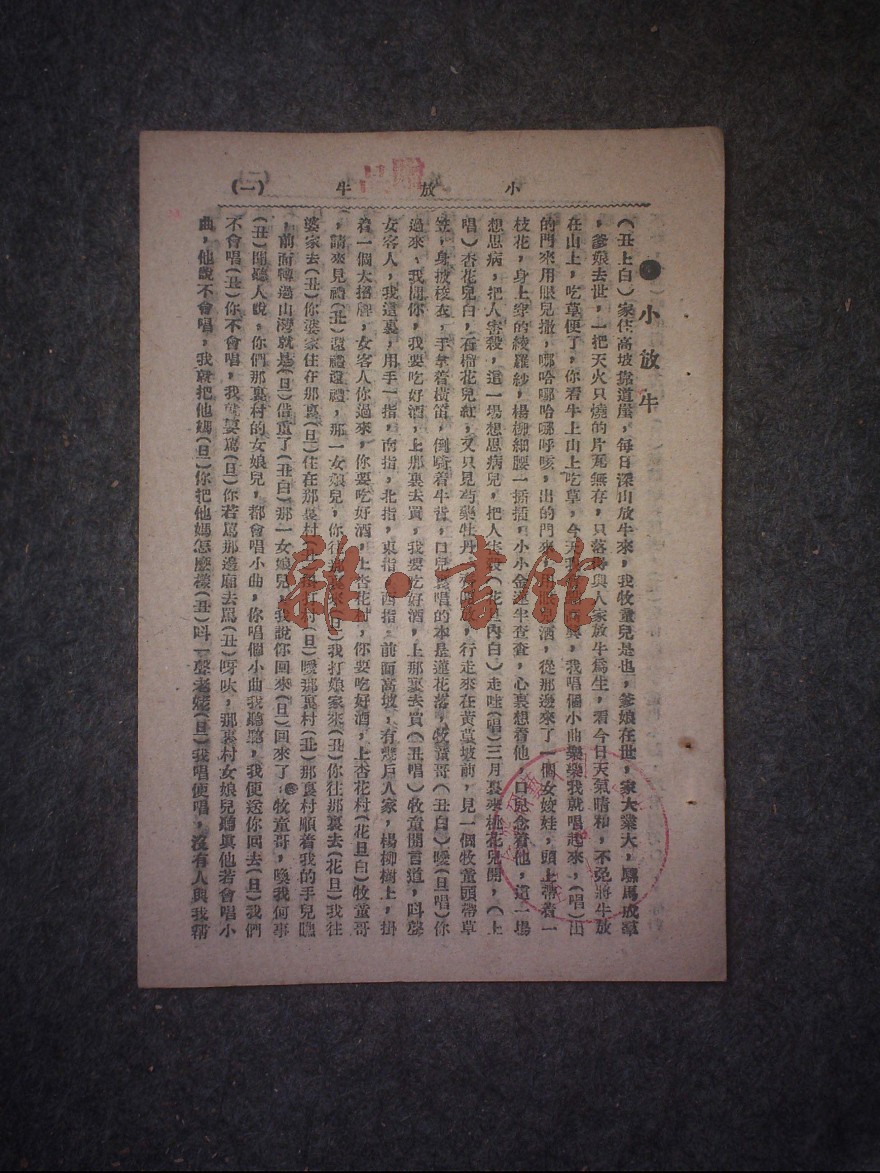 小放牛 (一)
●小放牛
(丑上白)家住高坡靠道崖，每日深山放牛來，我牧童兒是也，爹娘在世，家大業大，騾馬成羣
，爹娘去世，一把天火只燒的片瓦無存，只落得與人家放牛爲生，看今日天氣晴和，不免將牛放
在山上，吃草便了，你看牛上山上吃草，今天我，我唱個小曲樂樂我就唱起來，(唱)出
的門來用眼兒撒，哪哈哪哈哪呼咳，出的門來酒，從那邊來了一個女嬌娃，頭上帶着一
枝花，身上穿的綾羅紗，楊柳細腰一搭搭，小小金蓮半查查，心裏想着他，口兒念着他，這一場
想思病，把人害殺，這一場想思病兒，把人害殺(花旦內白)走哇(唱)三月裏來桃花兒開，(上
唱)杏花兒白，石榴花兒紅，又只見芍藥牡丹，行走來在黃草坡前，見一個牧童頭帶草
笠，身披梭衣，手拿着橫笛，倒騎着牛背，口兒裏唱的本是蓮花落，牧童哥(丑白)噯(旦唱)你
過來，我問你，我要吃好酒，上那裏去買，我要吃好酒，上那裏去買(丑唱)牧童開言道，叫聲
女客人，我這裏，用手一指，南指，北指，東指，西指，前面高坡，有幾戶人家，楊柳樹上，掛
着一個大招牌，女客人你過來，你要吃好酒，上杏花村，你要吃好酒，上杏花村(花旦白)牧童哥
，請來見禮(丑)還禮還禮，那一女娘兒，你往那裏來(旦)我打娘家來(丑)你往那裏去(花旦)我往
婆家去(丑)你婆家住在那裏(旦)住在那裏村(丑)村(旦)噯那裏村(丑)那裏村順着我的手兒瞧
，前面轉過山灣就是(旦)借重了(丑白)那一女娘兒，我說你回來(旦)回來了，牧童哥，喚我何事
(丑)聞聽人說，你們那裏村的女娘兒，都會唱小曲，你唱個小曲我聽聽，我便送你回去(旦)我們
不會唱(丑)你不會唱，我就要罵(旦)你若罵那邊廟去罵(丑)呀呔，那裏村女娘兒聽眞他若會唱小
曲，他說不會唱，我就把他媽(旦)你把他媽怎麼樣(丑)叫一聲老娘(旦)我唱便唱，沒有人與我幫
雜·書館